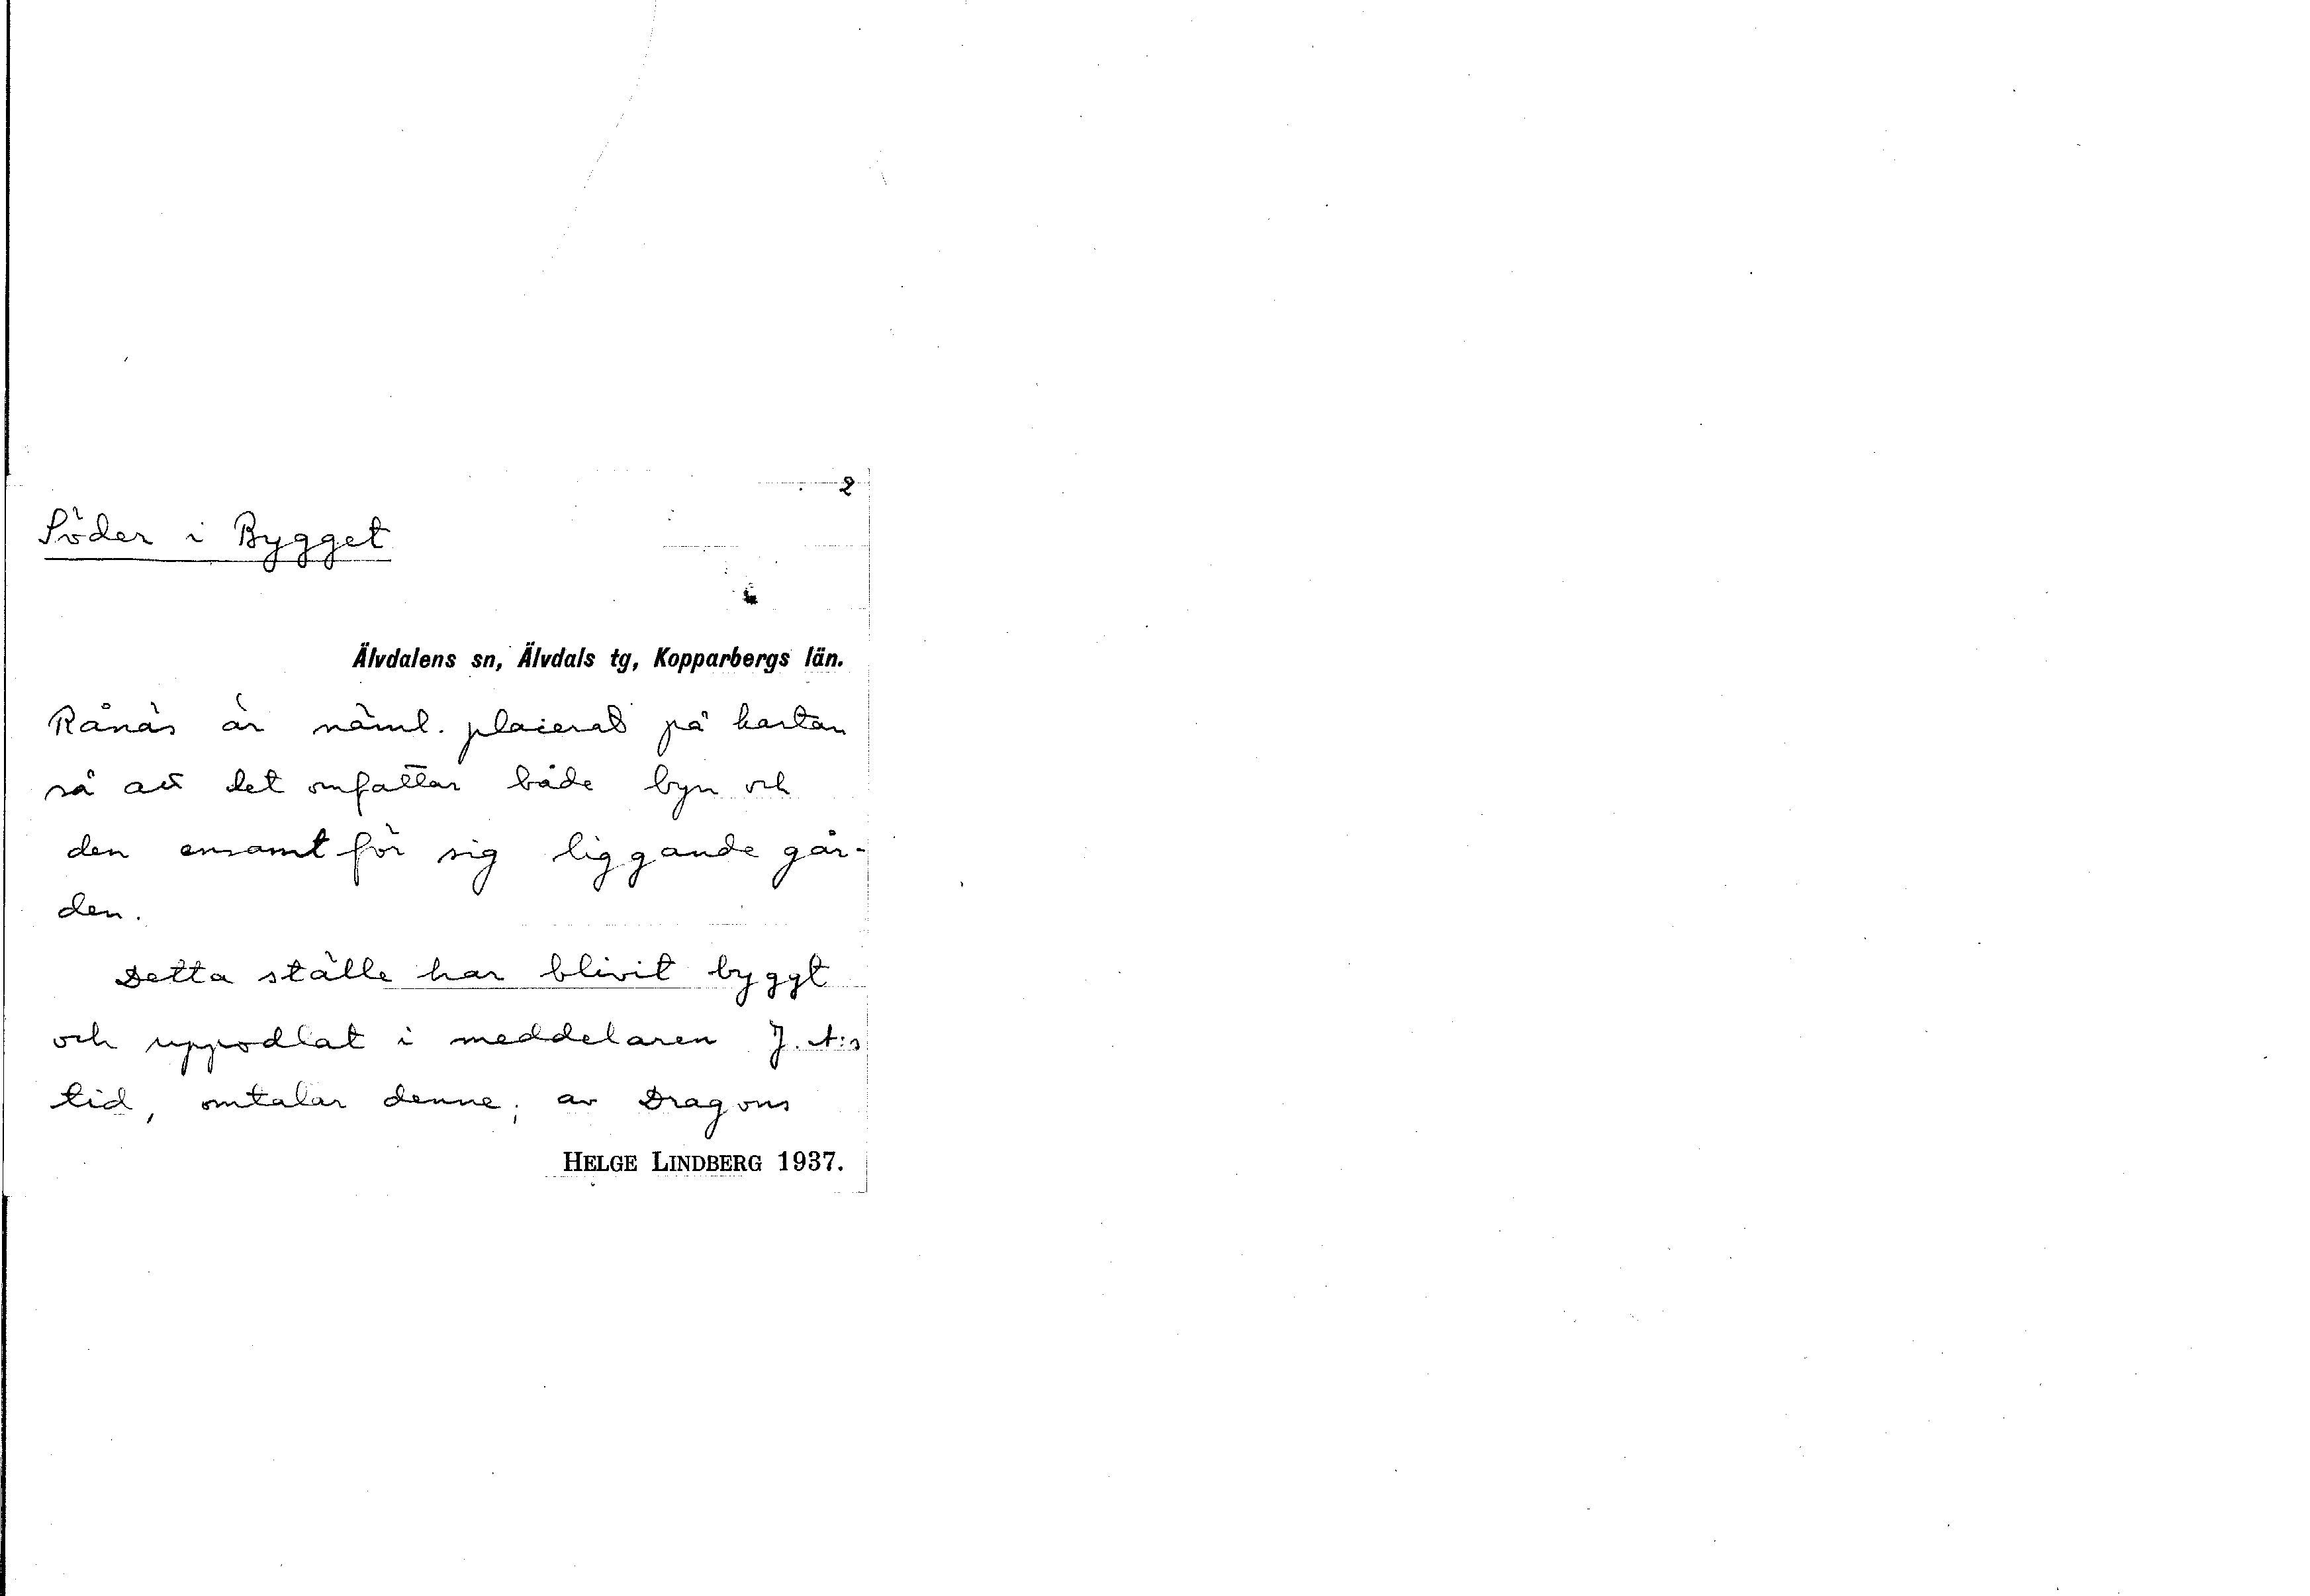 2
Söder i Bygget
Älvdalens sn, Älvdals tg, Kopparbergs län.
Rånäs är näml. placerat på kartan
så att det omfattar både byn och
den ensamt för sig liggande går-
den.
Detta ställe har blivit byggt
och uppodlat i meddelaren J. A:s
tid, omtalar denne, av Dragons
HELGE LINDBERG 1937.